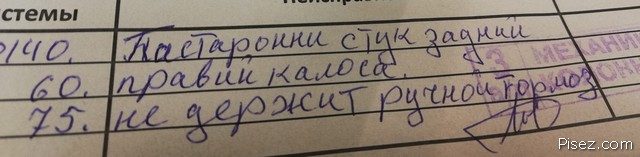 стемы
140. Пастаронни стук задний
60. правий калоса.
75. не держит ручной тормоз
3 МЕХАНИ
Pisez.com